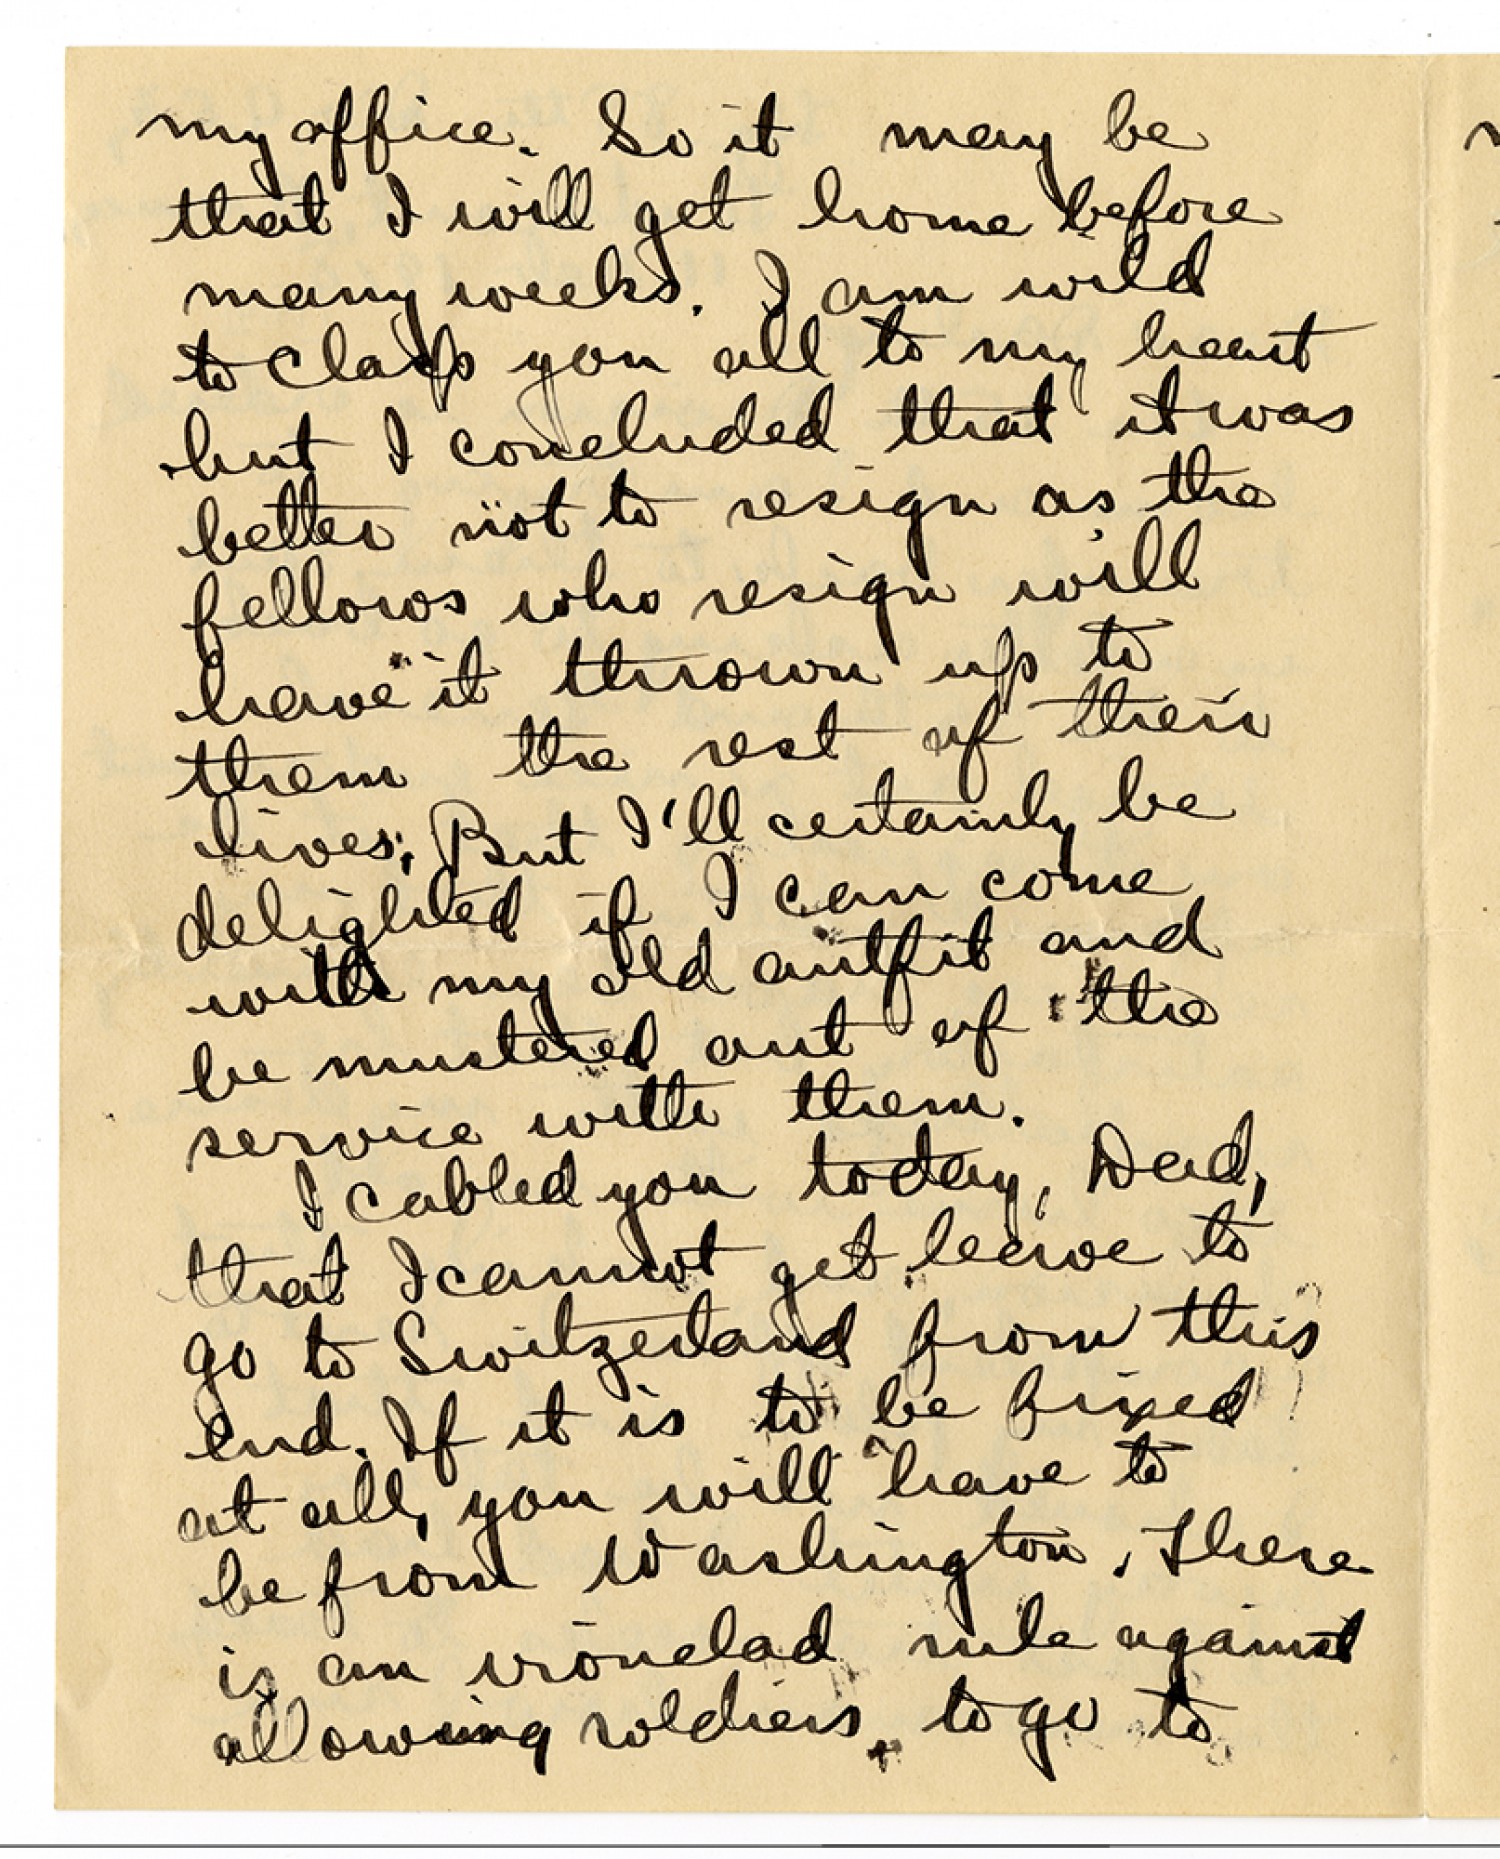 my office. So it may be
that I will get home before
many weeks. I am wild
to clasp you all to my heart
but I concluded that it was
better not to resign as the
fellows who resign will
have it thrown up to
them the rest of their
lives. But I'll certainly be
delighted if I can come
with my old outfit and
be mustered out of the
service with them.
I cabled you today, Dad,
that I cannot get leave to
go to Switzerland from this
end. If it is to be fixed
at all, you will have to
be from Washington. There
is an ironclad rule against
allowing soldiers to go to